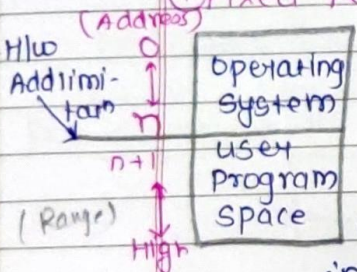 (Address)
H/w
Addlimi-
tarn
0
n
n+1
(Range)
High
operating
system
user
program
space